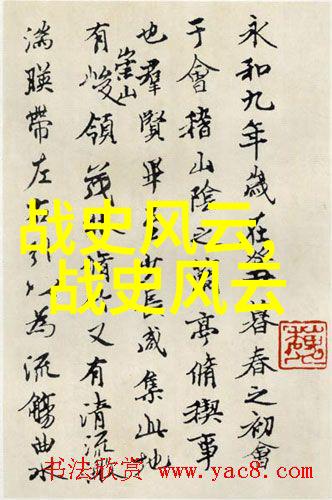 永和九年歲在癸丑暮春之初會
于會稽山陰之蘭亭脩稧事
也羣賢畢至少長咸集此地
有崇山峻領茂林脩竹又有清流激
湍暎帶左右引以為流觴曲水
战史风云,
战史风云
书法欣赏 www.yac8.com